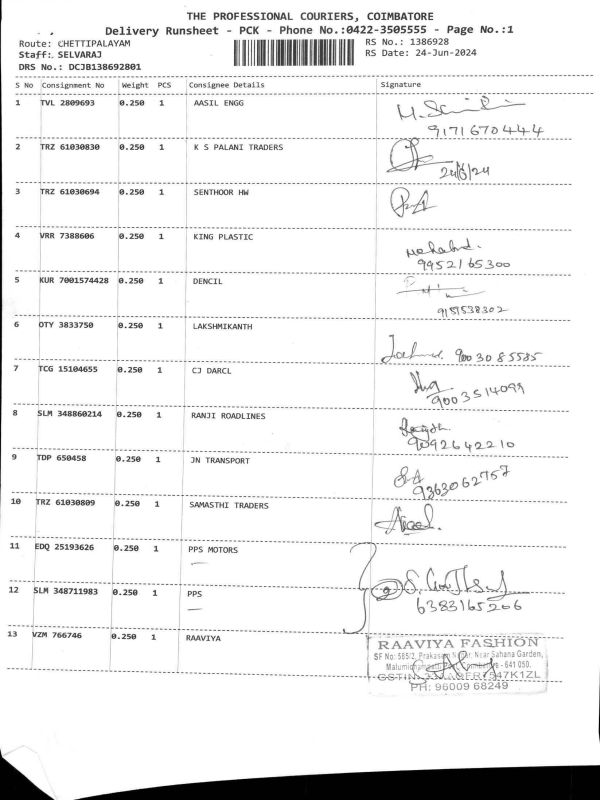 THE PROFESSIONAL COURIERS, COIMBATORE
Delivery Runsheet - PCK - Phone No.:0422-3505555 - Page No.:1
Route: CHETTIPALAYAM RS No.: 1386928
Staff: SELVARAJ RS Date: 24-Jun-2024
DRS No.: DCJB138692801
S No Consignment No Weight PCS Consignee Details Signature
1 TVL 2809693 0.250 1 AASIL ENGG
9171670444
2 TRZ 61030830 0.250 1 K S PALANI TRADERS
24/6/24
3 TRZ 61030694 0.250 1 SENTHOOR HW
4 VRR 7388606 0.250 1 KING PLASTIC
9952165300
5 KUR 7001574428 0.250 1 DENCIL
9151538302
6 OTY 3833750 0.250 1 LAKSHMIKANTH
9003085585
7 TCG 15104655 0.250 1 CJ DARCL
9003514099
8 SLM 348860214 0.250 1 RANJI ROADLINES
9092642210
9 TDP 650458 0.250 1 JN TRANSPORT
9363062757
10 TRZ 61030809 0.250 1 SAMASTHI TRADERS
11 EDQ 25193626 0.250 1 PPS MOTORS
12 SLM 348711983 0.250 1 PPS
6383165206
13 VZM 766746 0.250 1 RAAVIYA
RAAVIYA FASHION
SF No: 585/2, Prakasam Nagar, Near Sahana Garden,
Coimbatore - 641 050.
PH: 96009 68249